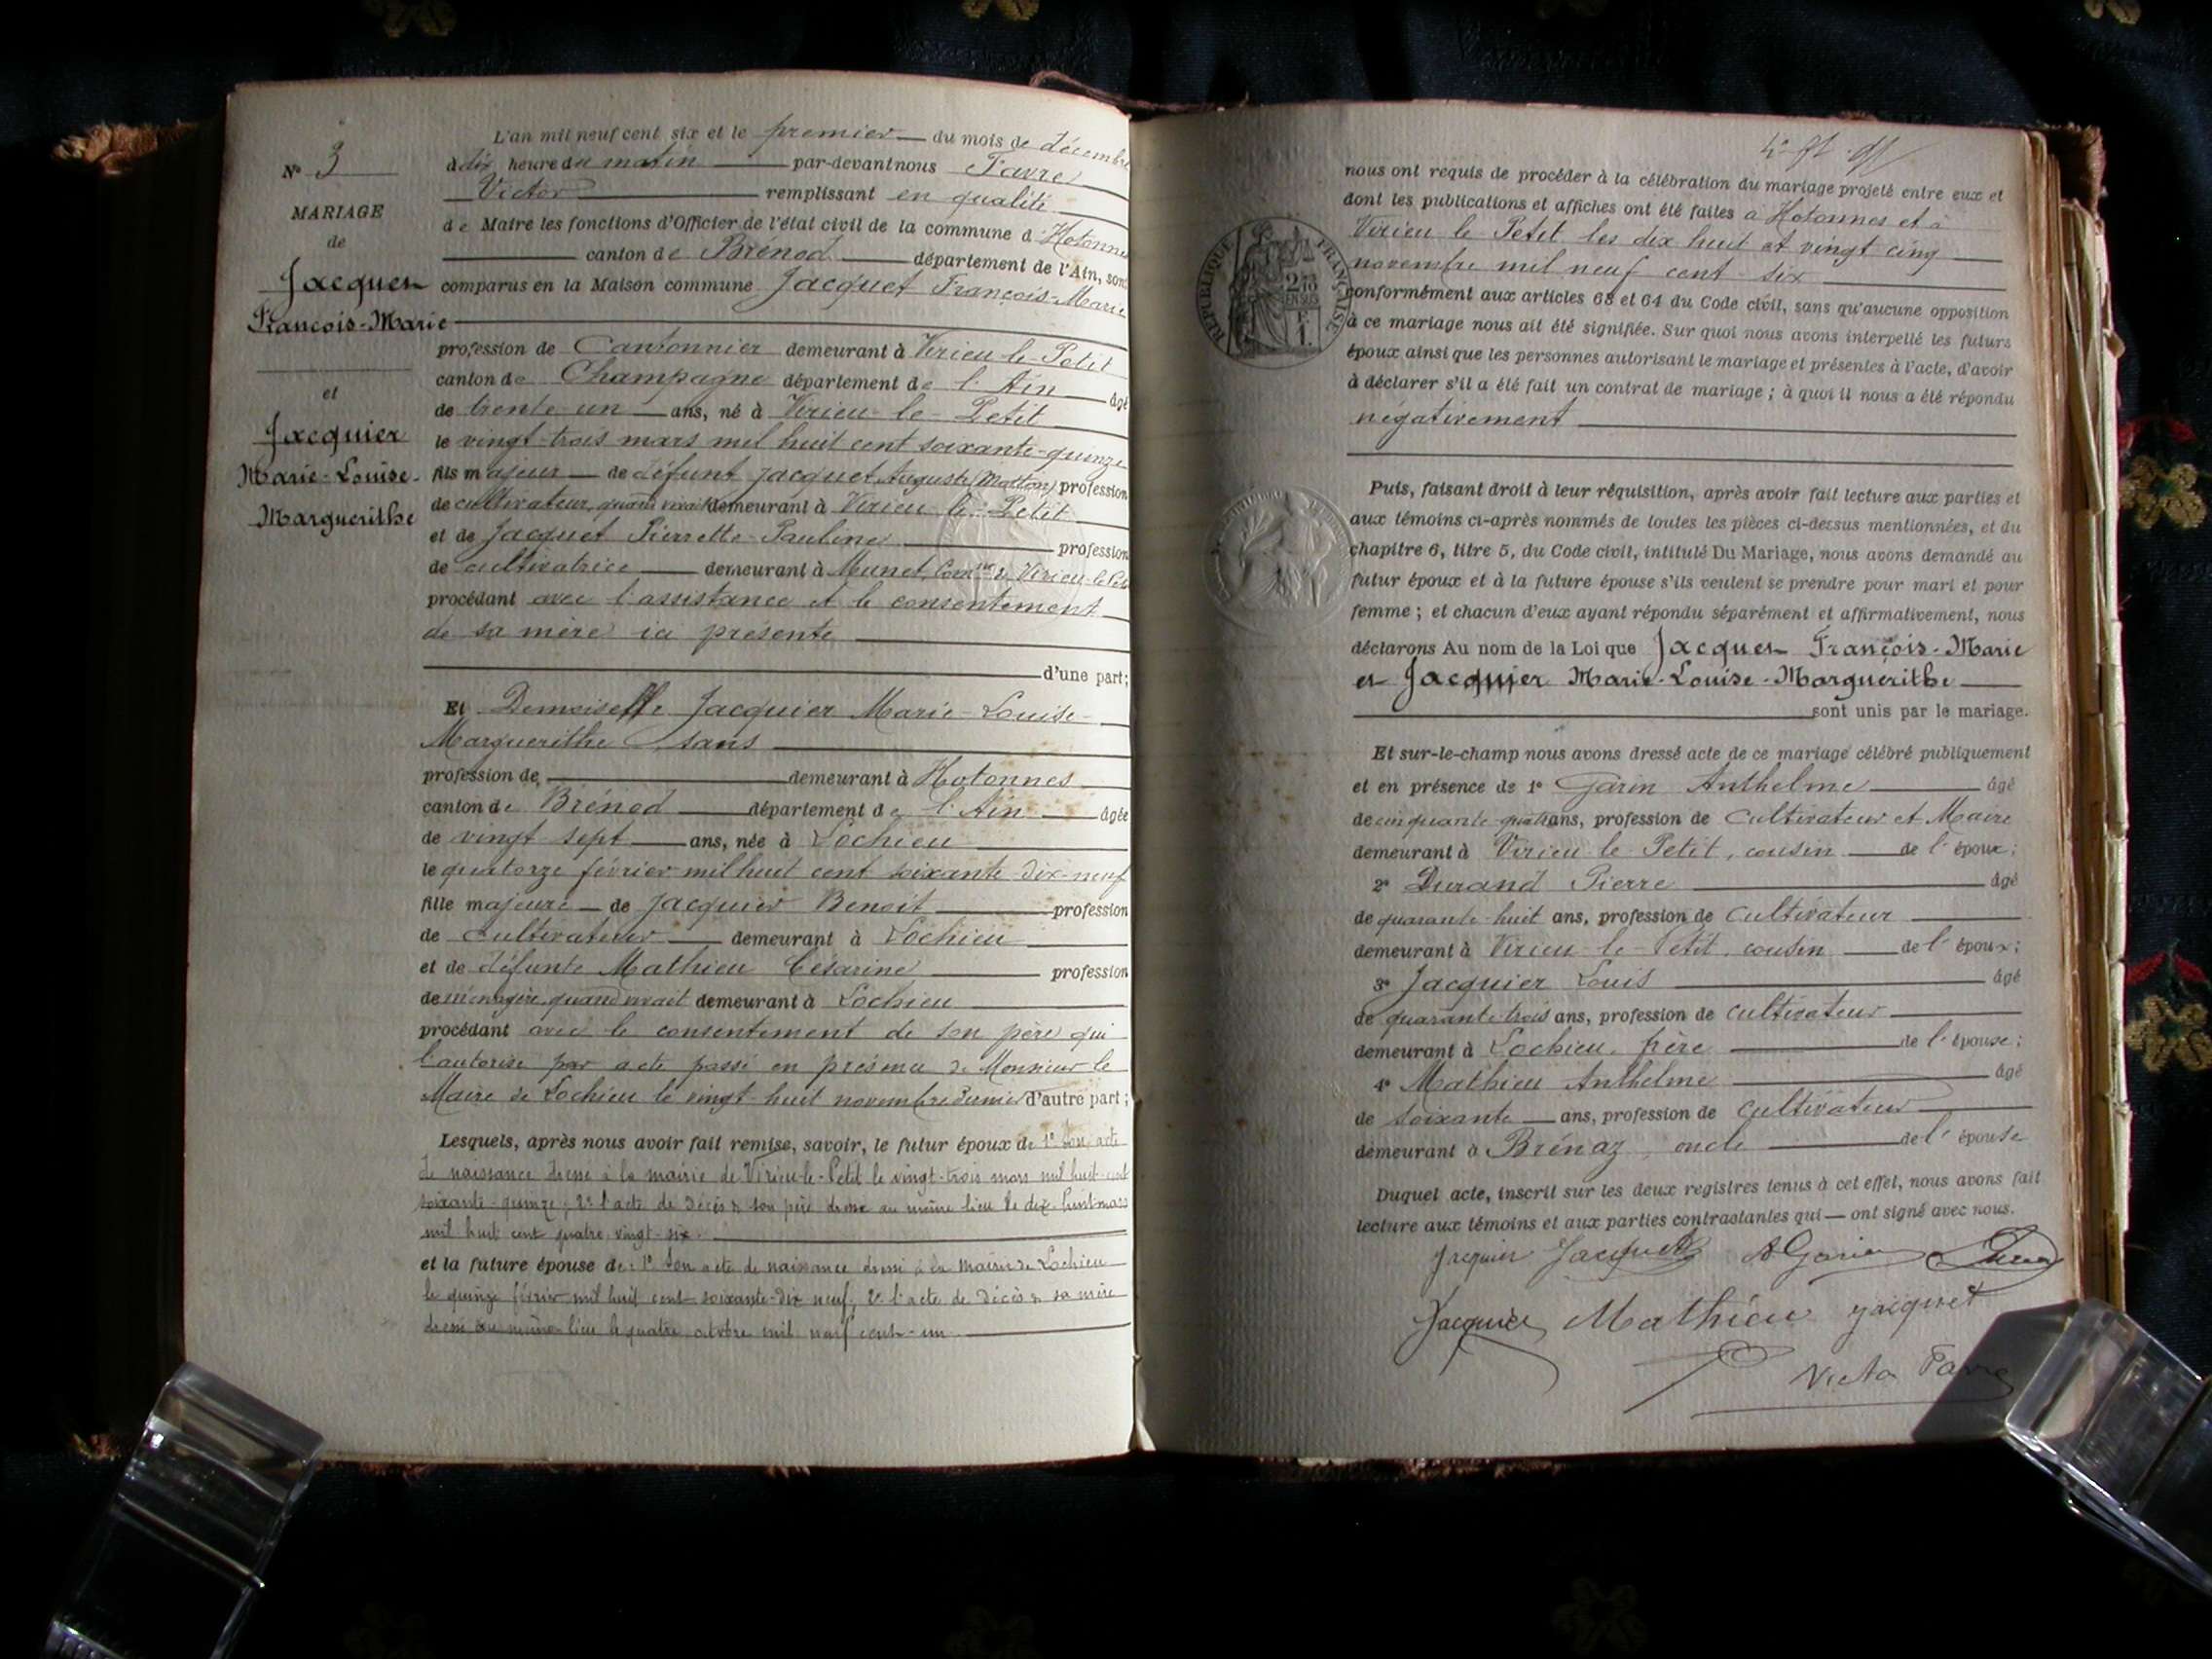 N° 3
MARIAGE
de
Jacquet
François-Marie
et
Jacquier
Marie-Louise-
Marguerithe
L'an mil neuf cent six et le premier du mois de décembre
à dix heure du matin par-devant nous Favre
Victor remplissant en qualité
de Maire les fonctions d'Officier de l'état civil de la commune d'Hotonnes
canton de Brénod département de l'Ain, sont
comparus en la Maison commune Jacquet François-Marie
profession de Cantonnier demeurant à Virieu-le-Petit
canton de Champagne département de l'Ain âgé
de trente-un ans, né à Virieu-le-Petit
le vingt-trois mars mil huit cent soixante-quinze
fils majeur de défunt Jacquet Auguste (Marton) profession
de cultivateur, quand vivait demeurant à Virieu-le-Petit
et de Jacquet Pierrette-Pauline profession
de cultivatrice demeurant à Munet, Comne de Virieu-le-Petit
procédant avec l'assistance et le consentement
de sa mère ici présente
d'une part;
Et Demoiselle Jacquier Marie-Louise-
Marguerithe, sans
profession de, demeurant à Hotonnes
canton de Brénod département de l'Ain âgée
de vingt-sept ans, née à Lochieu
le quatorze février mil huit cent soixante-dix-neuf
fille majeure de Jacquier Benoit profession
de cultivateur demeurant à Lochieu
et de défunte Mathieu Césarine profession
de ménagère, quand vivait demeurant à Lochieu
procédant avec le consentement de son père qui
l'autorise par acte passé en présence de Monsieur le
Maire de Lochieu le vingt-huit novembre dernier d'autre part;
Lesquels, après nous avoir fait remise, savoir, le futur époux de 1° son acte
de naissance dressé à la mairie de Virieu-le-Petit le vingt-trois mars mil huit-cent
soixante-quinze; 2° l'acte de décès de son père dressé au même lieu le dix-huit mars
mil huit cent quatre-vingt-six.
et la future épouse de: 1° son acte de naissance dressé à la mairie de Lochieu
le quinze février mil huit cent soixante-dix neuf; 2° l'acte de décès de sa mère
dressé au même lieu le quatre octobre mil neuf cent-un
nous ont requis de procéder à la célébration du mariage projeté entre eux et
dont les publications et affiches ont été faites à Hotonnes et à
Virieu le Petit les dix huit et vingt cinq
novembre mil neuf cent six
conformément aux articles 63 et 64 du Code civil, sans qu'aucune opposition
à ce mariage nous ait été signifiée. Sur quoi nous avons interpellé les futurs
époux ainsi que les personnes autorisant le mariage et présentes à l'acte, d'avoir
à déclarer s'il a été fait un contrat de mariage; à quoi il nous a été répondu
négativement
RÉPUBLIQUE FRANÇAISE
Puis, faisant droit à leur réquisition, après avoir fait lecture aux parties et
aux témoins ci-après nommés de toutes les pièces ci-dessus mentionnées, et du
chapitre 6, titre 5, du Code civil, intitulé Du Mariage, nous avons demandé au
futur époux et à la future épouse s'ils veulent se prendre pour mari et pour
femme; et chacun d'eux ayant répondu séparément et affirmativement, nous
déclarons Au nom de la Loi que Jacquet François-Marie
et Jacquier Marie-Louise-Marguerithe
sont unis par le mariage.
Et sur-le-champ nous avons dressé acte de ce mariage célébré publiquement
et en présence de 1° Garin Anthelme âgé
de cinquante-quatre ans, profession de cultivateur et Maire
demeurant à Virieu le Petit, cousin de l'époux;
2° Durand Pierre âgé
de quarante-huit ans, profession de cultivateur
demeurant à Virieu-le-Petit, cousin de l'époux;
3° Jacquier Louis âgé
de quarante-trois ans, profession de cultivateur
demeurant à Lochieu, frère de l'épouse;
4° Mathieu Anthelme âgé
de soixante ans, profession de cultivateur
demeurant à Brénaz, oncle de l'épouse
Duquel acte, inscrit sur les deux registres tenus à cet effet, nous avons fait
lecture aux témoins et aux parties contractantes qui ont signé avec nous.
Jacquier Jacquet A Garin
Jacquier Mathieu jacquet
Victor Favre